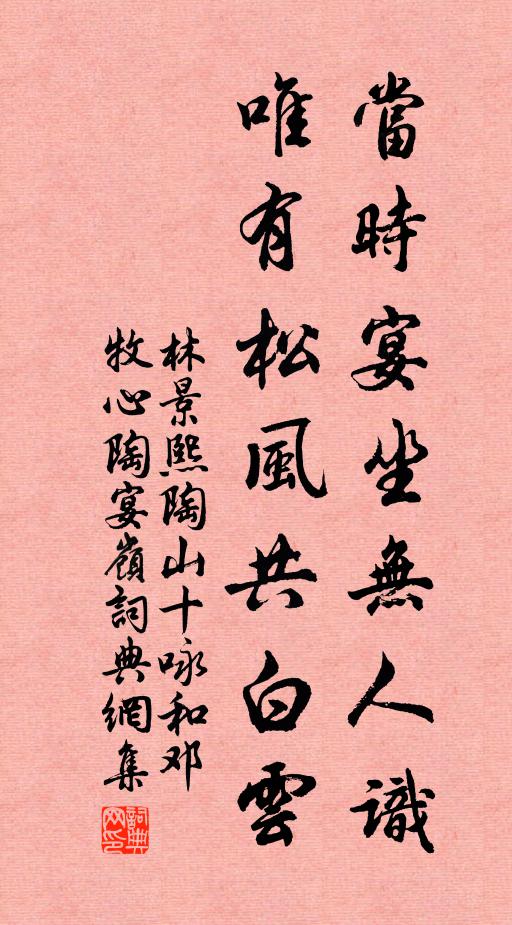 當時宴坐無人識
唯有松風共白雲
林景熙陶山十咏和邓
牧心陶宴嶺詞典網集
詞典网印